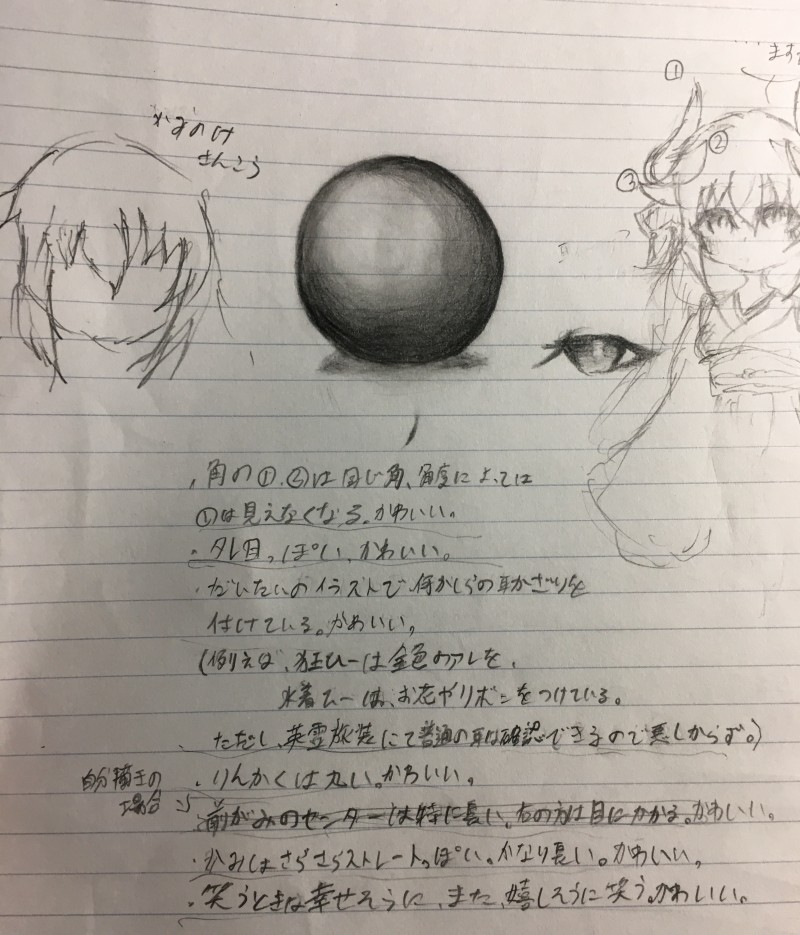 … まず
①
②
③
かみのけ
さんこう
・角の①、②は同じ角、角度によっては
①は見えなくなる。かわいい。
・タレ目っぽい、かわいい。
・だいたいのイラストで何かしらの耳かざりを
付けている。かわいい。
(例えば、狂ひーは金色のアレを、
水着ひーは、お花やリボンをつけている。
ただし、英霊旅装にて普通の耳は確認できるので悪しからず。)
・りんかくは丸い。かわいい。
自分描きの
場合
・前がみのセンターは特に長い。右の方は目にかかる。かわいい。
・かみはさらさらストレートっぽい。かなり長い。かわいい。
・笑うときは幸せそうに、また、嬉しそうに笑う。かわいい。